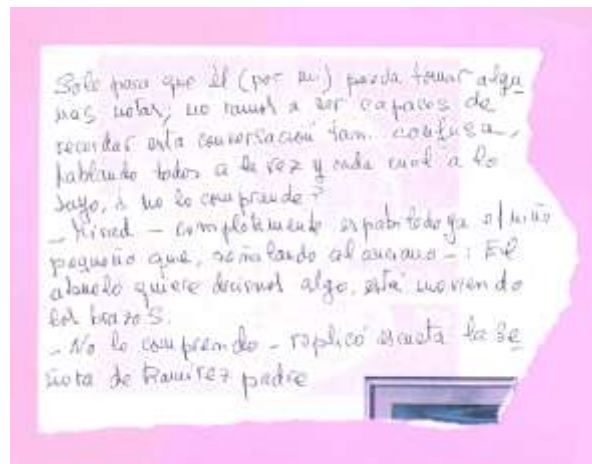 Solo para que él (por mi) pueda tomar algu
nas notas; no vamos a ser capaces de
recordar esta conversación tan confusa,
hablando todos a la vez y cada cual a lo
suyo, ¿ no lo comprende?
- Mired - completamente espabilado ya el niño
pequeño que, señalando al anciano - : El
abuelo quiere decirnos algo, está moviendo
los brazos.
- No lo comprendo - replicó escueta la Se
ñora de Ramírez padre